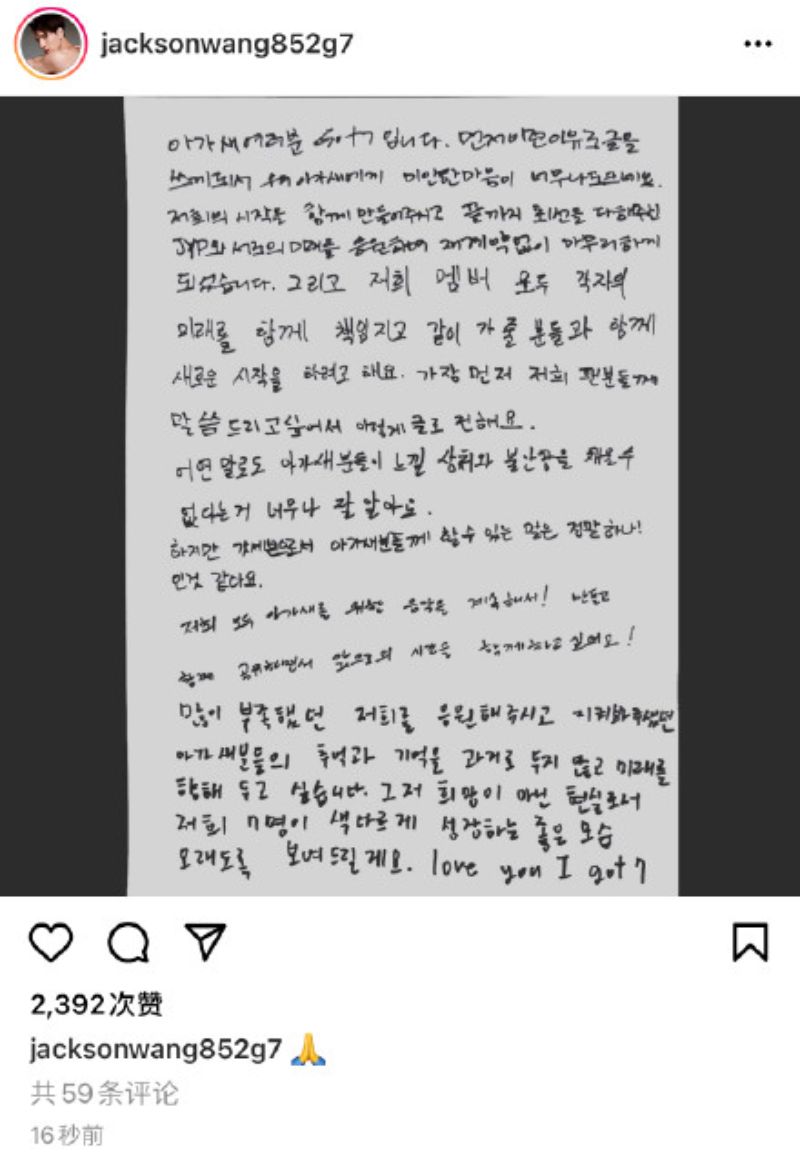 jacksonwang852g7
아가새 여러분 Got7 입니다. 먼저 이런 이유로 글을
쓰게 되서 우리 아가새에게 미안한 마음이 너무나도 크네요.
저희의 시작을 함께 만들어주시고 끝까지 최선을 다해주신
JYP와 서로의 미래를 응원하며 재계약 없이 마무리하게
되었습니다. 그리고 저희 멤버 모두 각자의
미래를 함께 책임지고 같이 가 줄 분들과 함께
새로운 시작을 하려고 해요. 가장 먼저 저희 팬분들께
말씀드리고 싶어서 이렇게 글로 전해요.
어떤 말로도 아가새분들이 느낄 상처와 불안감을 채울 수
없다는 거 너무나 잘 알아요.
하지만 갓세븐으로서 아가새분들께 할 수 있는 말은 정말 하나!
인것 같아요.
저희 모두 아가새를 위한 음악은 계속해서! 만들고
함께 공유하면서 앞으로의 시간을 함께하고 싶어요!
많이 부족했던 저희를 응원해주시고 지켜봐주셨던
아가새분들의 추억과 기억을 과거로 두지 않고 미래를
향해 두고 싶습니다. 그저 희망이 아닌 현실로서
저희 7명이 색다르게 성장하는 좋은 모습
오래도록 보여드릴게요. love you I got7
2,392次赞
jacksonwang852g7 🙏
共 59 条评论
16 秒前